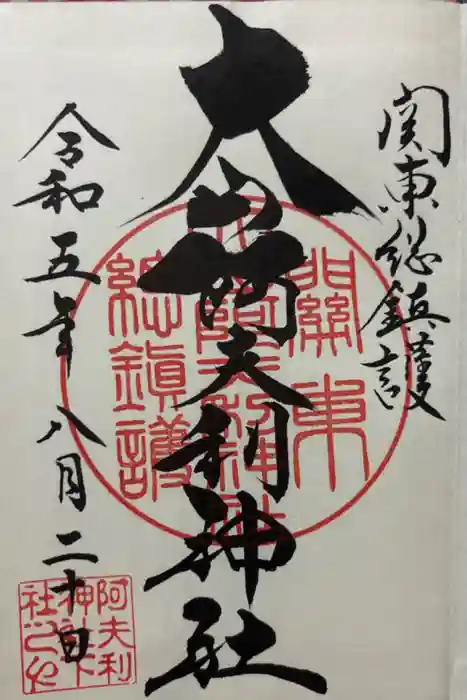 関東総鎮護
大山阿夫利神社
令和五年八月二十日
關東
大山阿夫利神社
總鎮護
阿夫利
神社下
社之